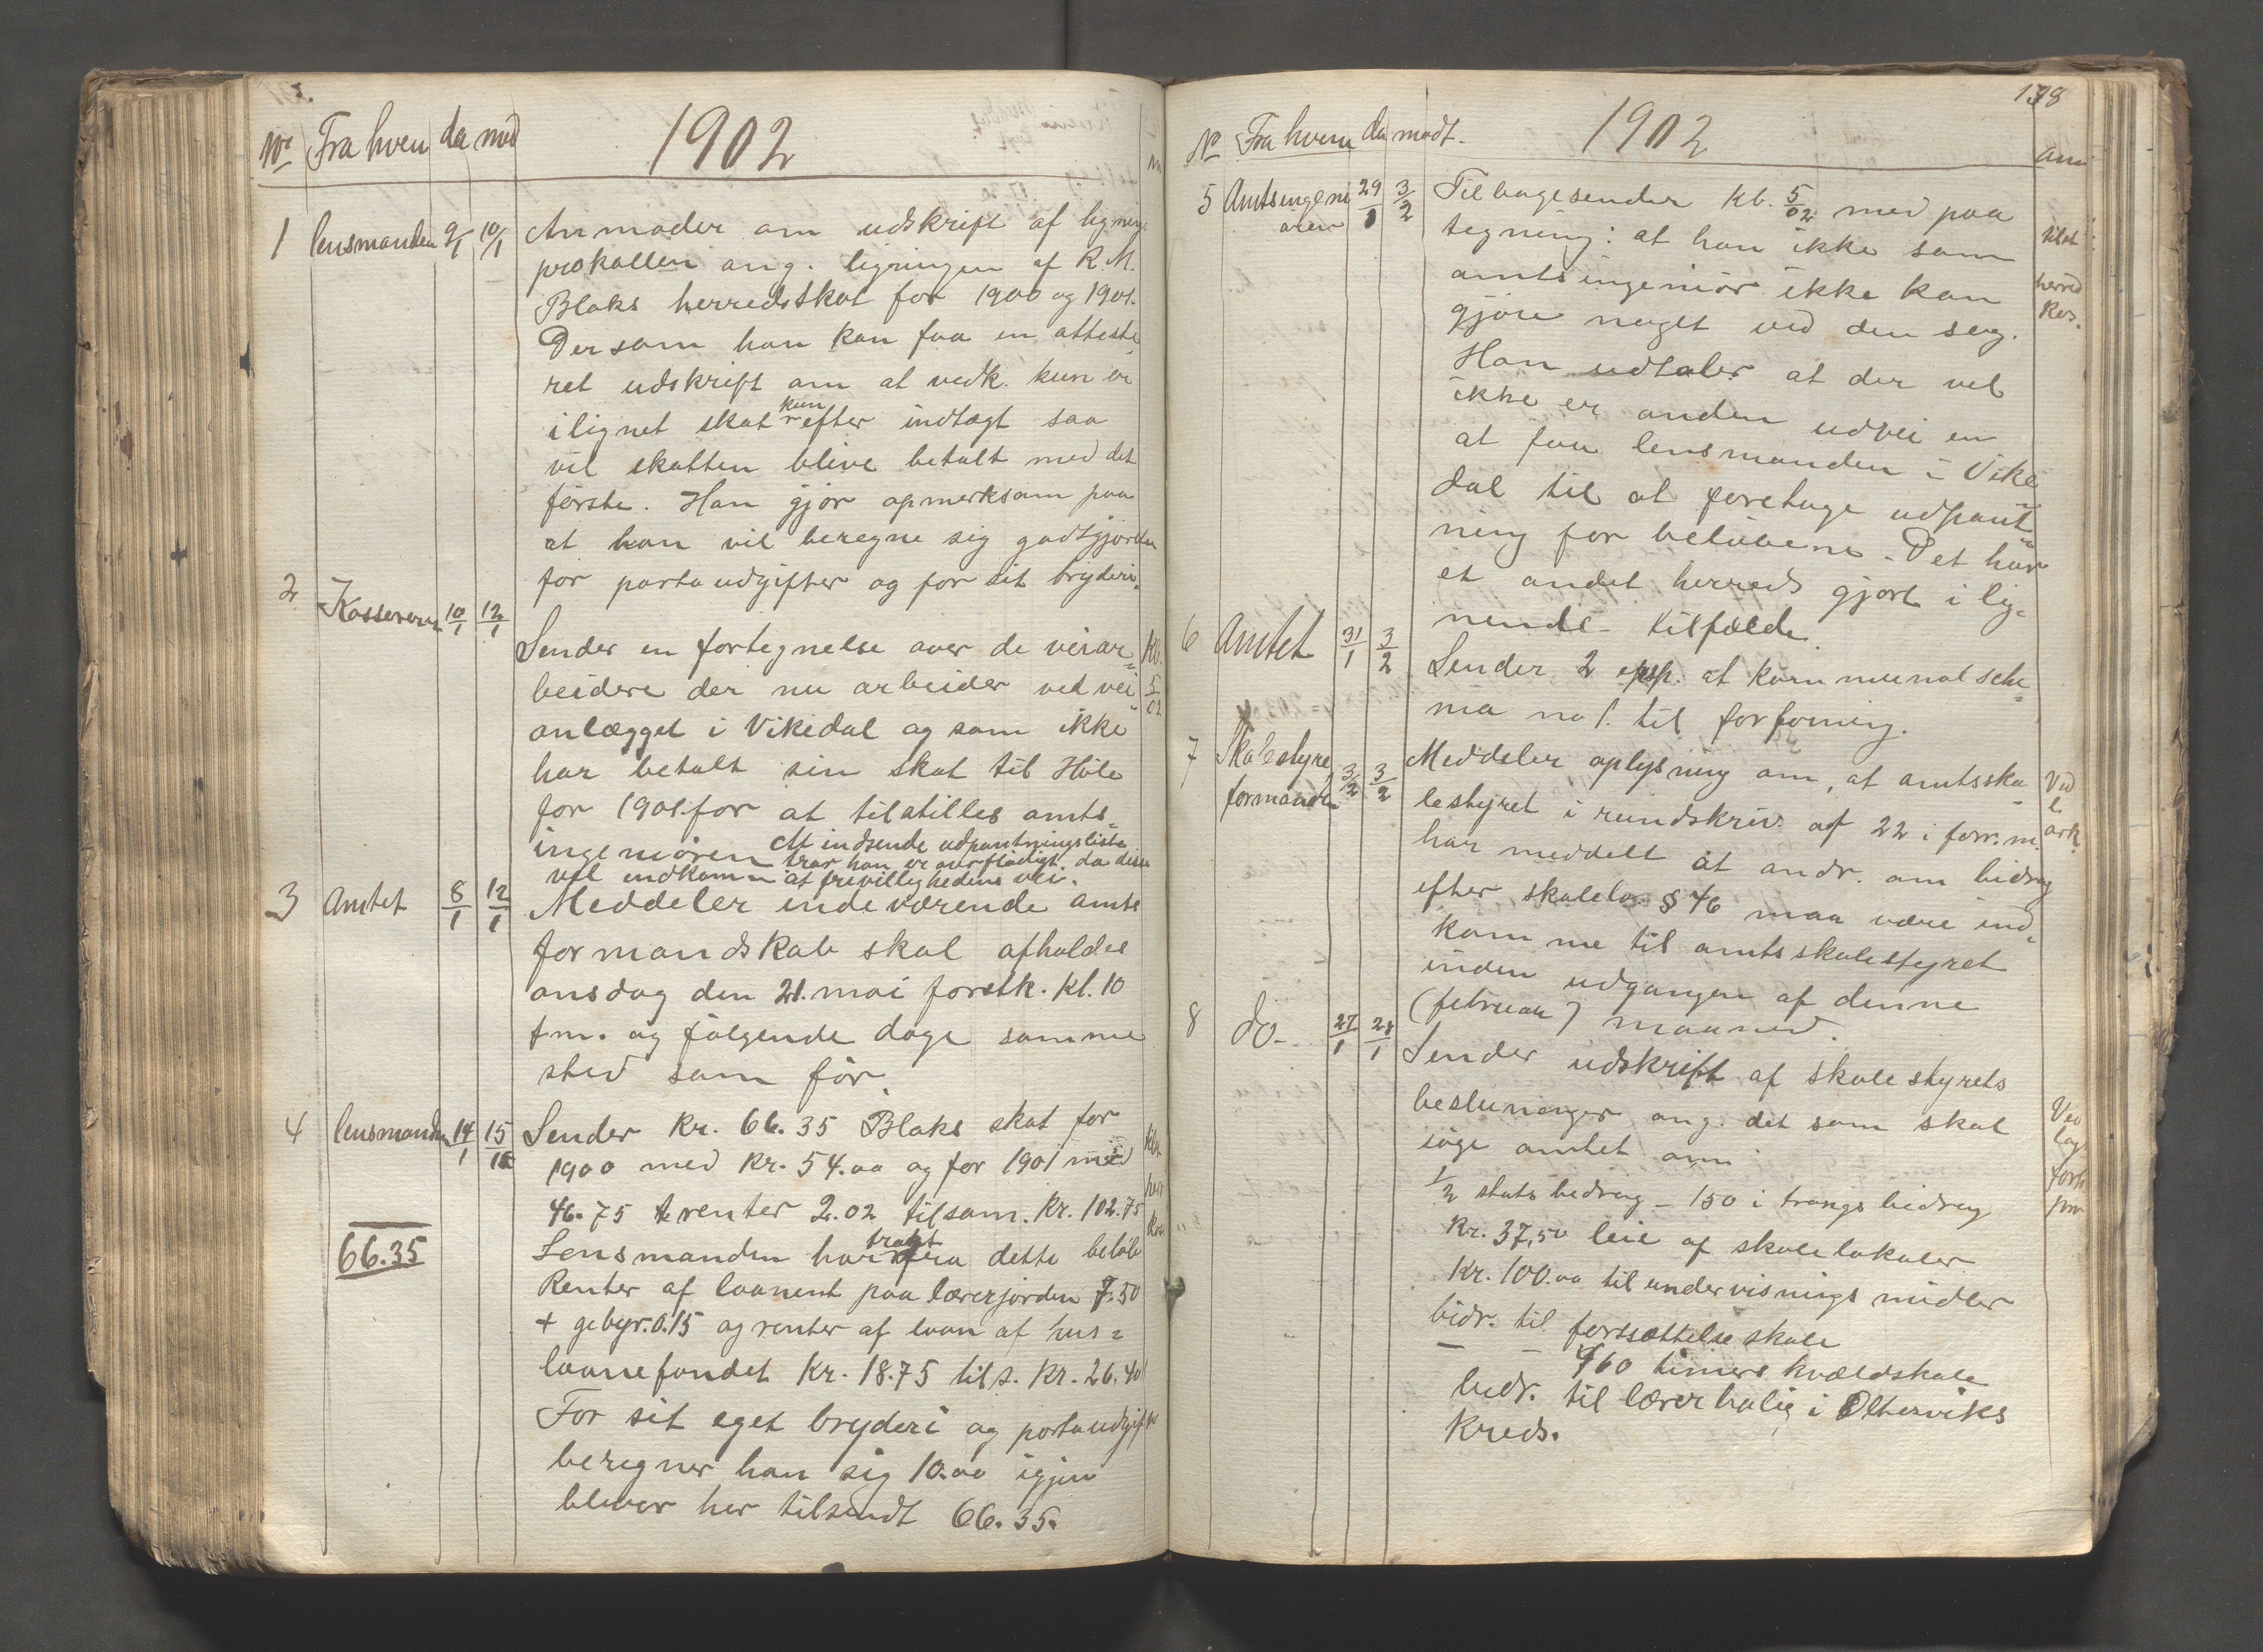 No Fra hven da mod 1902
1 lensmanden 9/1 10/1 Anmoder om udskrift af lignings
prokollen ang. ligningen af R. M.
Blaks herredsskat for 1900 og 1901.
Dersom han kan faa en atteste-
ret udskrift om at vedk. kun er
ilignet skat kun efter indtægt saa
vil skatten blive betalt med det
første. Han gjør opmerksom paa
at han vil beregne sig godtgjørelse
for portoudgifter og for sit bryderi.
2 Kassereren 10/1 12/1
Sender en fortegnelse over de veiar= Kb.
beidere der nu arbeider ved vei= 5/02
anlægget i Vikedal og som ikke
har betalt sin skat til Høle
for 1901. for at tilstilles amts=
ingeniøren At indsende udpantningsliste
tror han er overflødigt da disse
vil indkomme at frevillighedens vei.
3 Amtet 8/1 12/1 Meddeler indeværende amts
formandskab skal afholdes
onsdag den 21. mai førstk. kl. 10
fm. og følgende dage samme
sted som før
4 lensmanden 14/1 15/1 Sender Kr. 66.35 Blaks skat for
1900 med Kr. 54.00 og for 1901 med
46.75 + renter 2.02 tilsam. Kr. 102.75
66.35
Lensmanden har tragt fra dette beløb
Renter af laanent paa lærerjorden 7.50
+ gebyr. 0.15 og renter af laan af hus=
laanefondet Kr. 18.75 tils. Kr. 26.40
For sit eget bryderi og portoudgifter
beregner han sig 10.00 igjen
bliver her tilsendt 66.35.
178
No Fra hvem da modt. 1902 Anm
5 Amtsingeni 29/1 3/2 Tilbagesender Kb. 5/02 med paa
øren
tegning: at han ikke som tilst
amtsingeniør ikke kan herred
gjøre noget ved den sag. Kas.
Han udtaler at der vel
ikke er anden udvei en
at faa lensmanden i Vike
dal til at foretage udpant=
ning for beløbene. Det har
et andet herreds gjort i lig=
nende tilfælde.
6 Amtet 31/1 3/2 Sender 2 exp. at kommunal sche=
ma no 1. til forfning.
7 Skolestyre 3/2 3/2 Meddeler oplysning om, at amtssko Ved
formanden lestyret i rundskriv. af 22 i forr. m. l.
har meddelt at andr. om bidrag ark.
efter skolelov § 46 maa være ind=
komme til amtsskolestyret
inden udgangen af denne
(februar) maaned.
8 do. 27/1 28/1 Sender udskrift af skolestyrets
beslunenger ang. det som skal
søge amtet om
½ stats bidrag - 150 i trangs bidrag
Kr. 37,50 leie af skolelokaler
Kr. 100.00 til undervisnings midler
bidr. til forssættelse skole
— — 960 timers kvældskole
bidr. til lærerbolig i Oltesviks
Kreds.